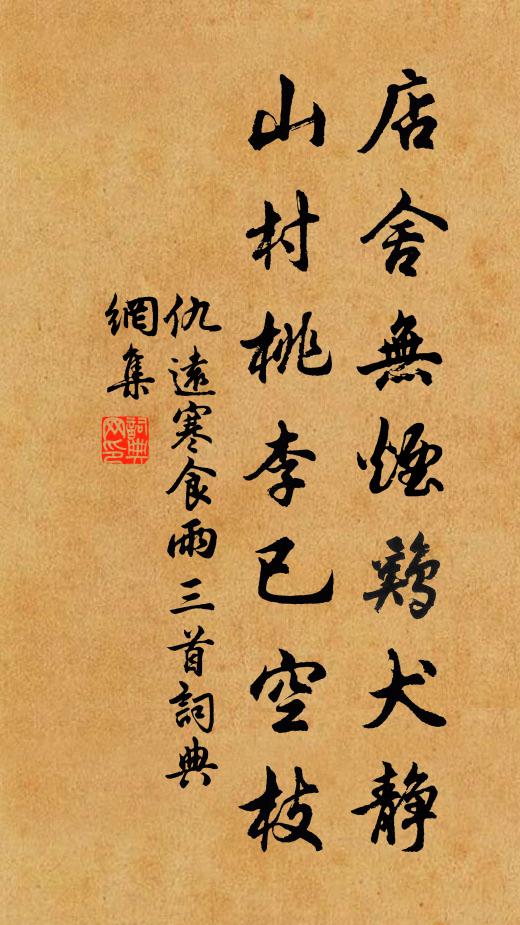 店舍無煙鷄犬静
山村桃李已空枝
仇遠寒食雨三首詞典
網集
詞典网印